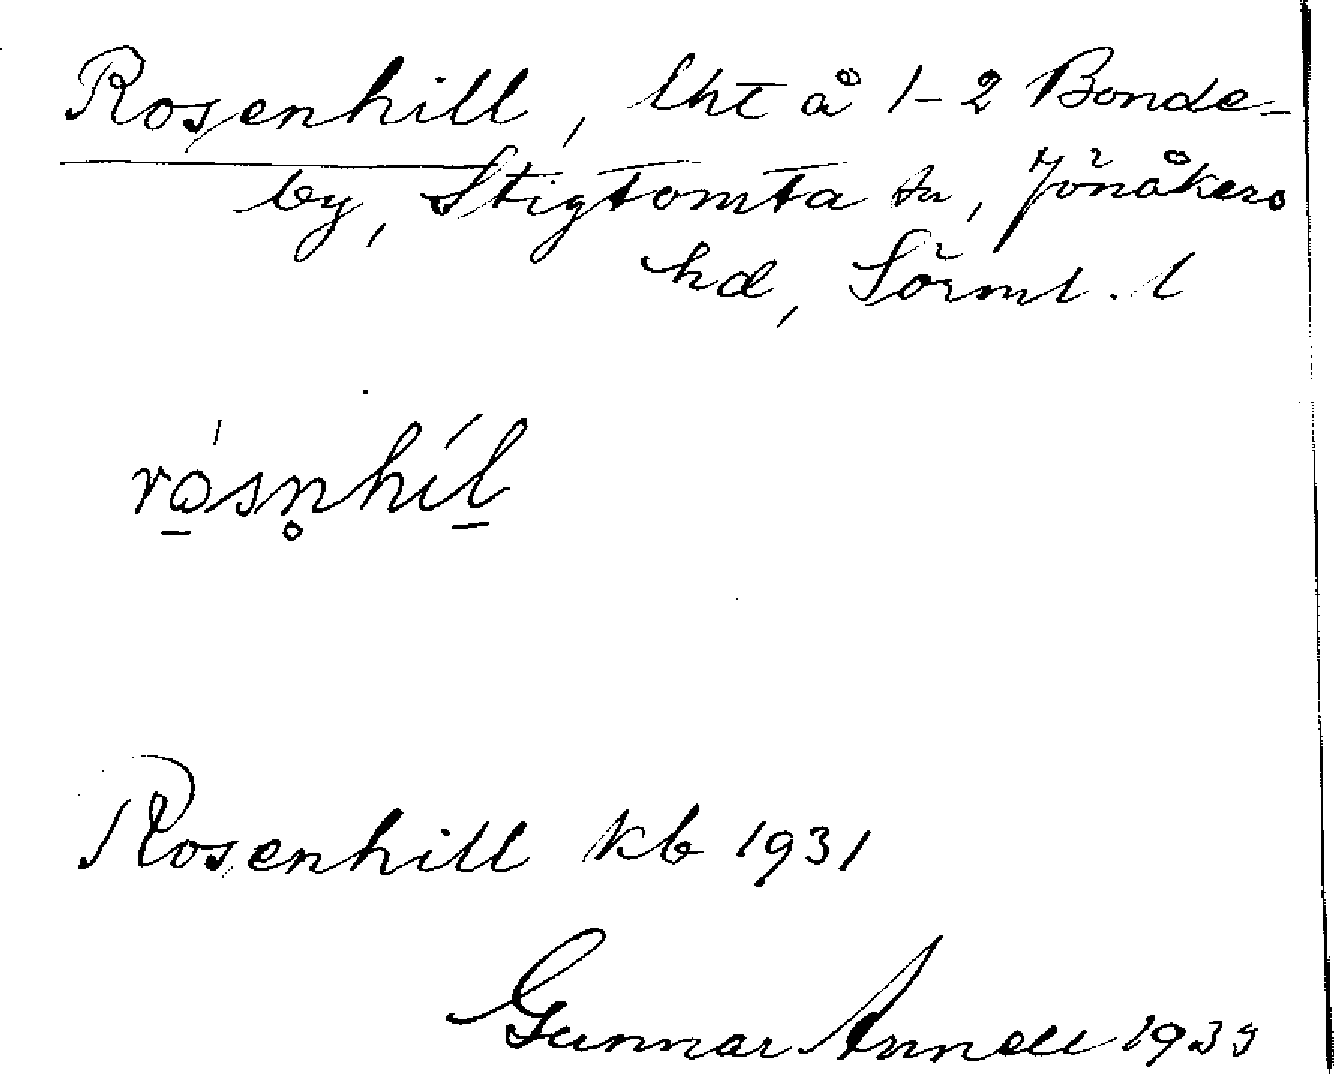 Rosenhill, lht å 1-2 Bonde-
by, Stigtomta sn, Jönåkers
hd, Sörml. l
rósn̥híl
Rosenhill kb 1931
Gunnar Annell 1933